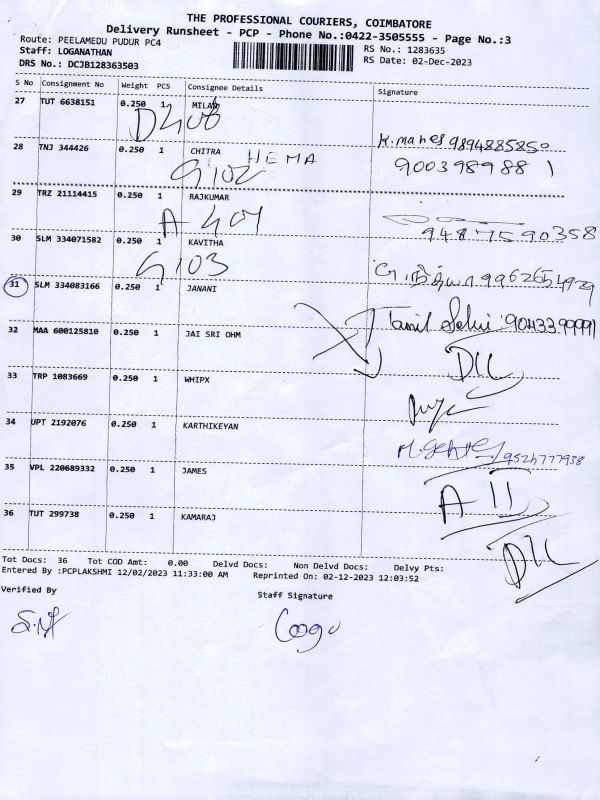 THE PROFESSIONAL COURIERS, COIMBATORE
Delivery Runsheet - PCP - Phone No.:0422-3505555 - Page No.:3
Route: PEELAMEDU PUDUR PC4
RS No.: 1283635
Staff: LOGANATHAN
RS Date: 02-Dec-2023
DRS No.: DCJB128363503
S No Consignment No Weight PCS Consignee Details Signature
27 TUT 6638151 0.250 1 MILAN
D408
K. mahes 9894885850
28 TNJ 344426 0.250 1 CHITRA HEMA
G102 9003989881
29 TRZ 21114415 0.250 1 RAJKUMAR
A 404 9487590358
30 SLM 334071582 0.250 1 KAVITHA
G103 9962654929
31 SLM 334083166 0.250 1 JANANI
Tamil Selvi: 9043399991
32 MAA 600125810 0.250 1 JAI SRI OHM
DLL
33 TRP 1083669 0.250 1 WHIPX
34 UPT 2192076 0.250 1 KARTHIKEYAN
9524777938
35 VPL 220689332 0.250 1 JAMES
A II
36 TUT 299738 0.250 1 KAMARAJ
DLL
Tot Docs: 36 Tot COD Amt: 0.00 Delvd Docs: Non Delvd Docs: Delvy Pts:
Entered By :PCPLAKSHMI 12/02/2023 11:33:00 AM Reprinted On: 02-12-2023 12:03:52
Verified By
Staff Signature
Loogu